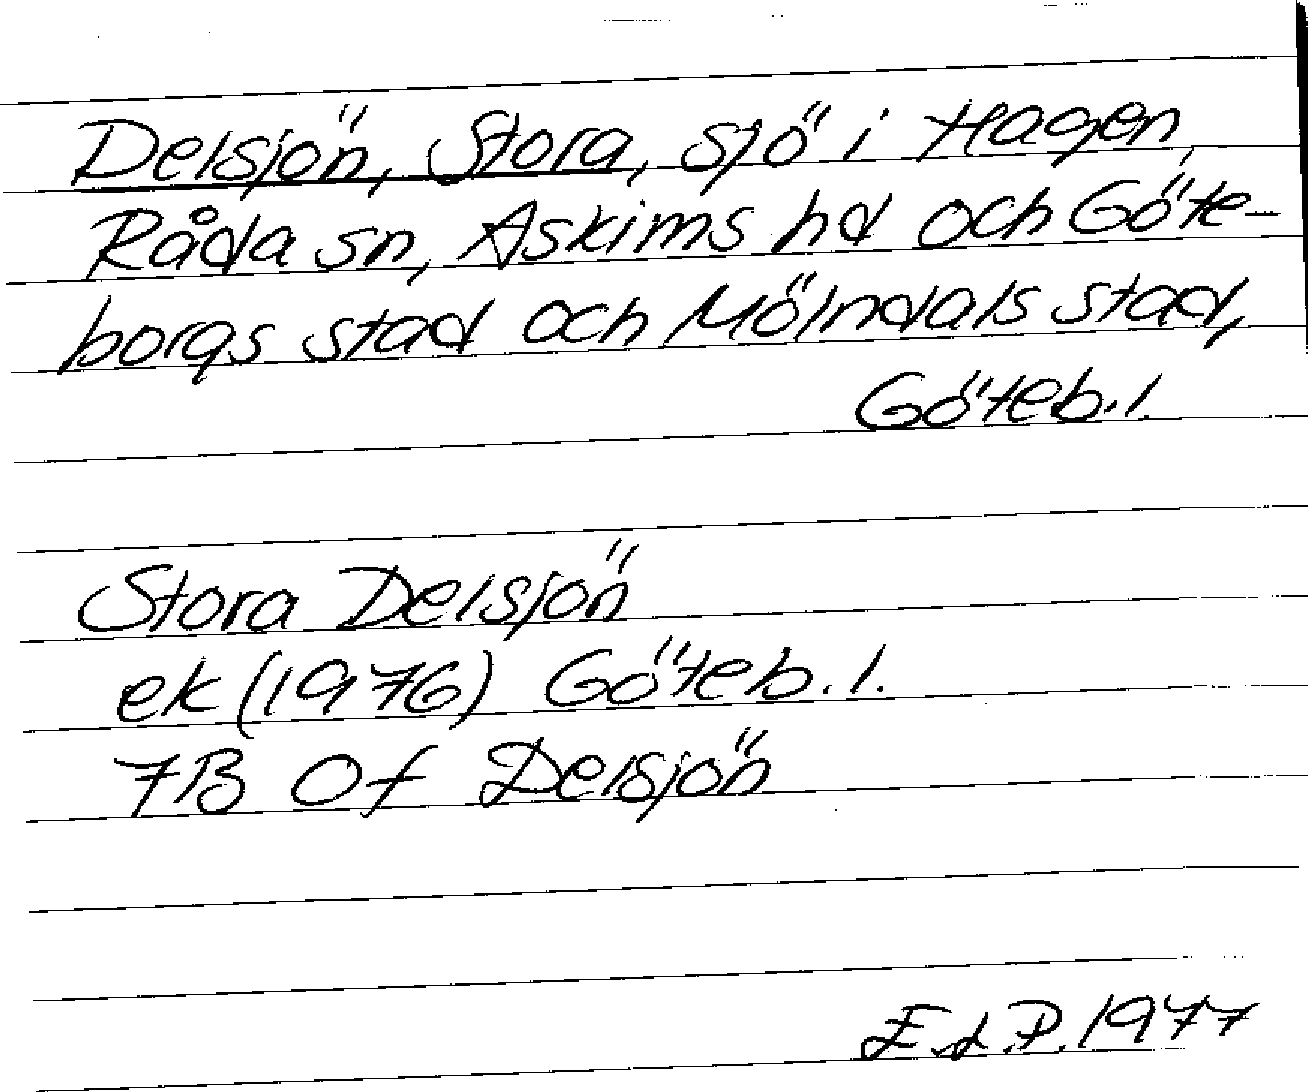 Delsjön, Stora, sjö i Hagen,
Råda sn, Askims hd och Göte-
borgs stad och Mölndals stad,
Göteb. l.
Stora Delsjön
ek (1976) Göteb. l.
7B 0f Delsjön
E.L.P. 1977